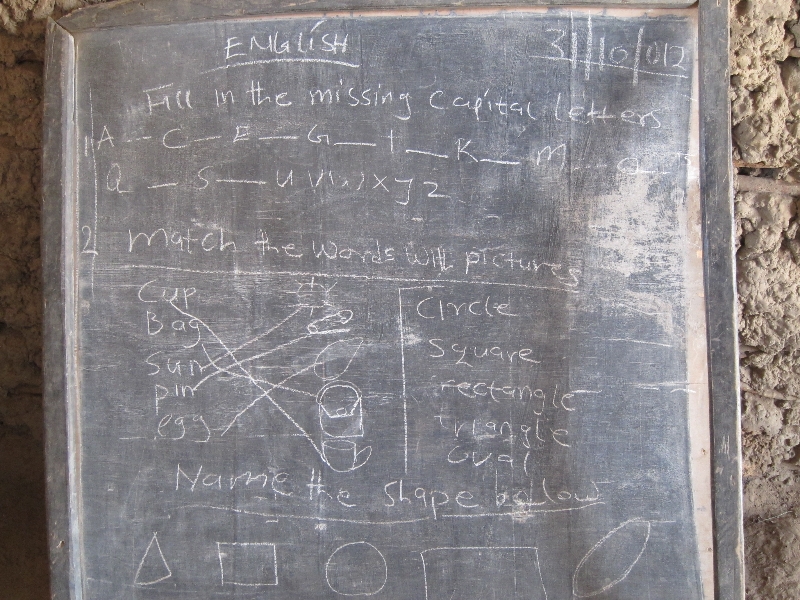 ENGLISH 31/10/012
Fill in the missing Capital letters
1 A — C — E — G — I — K — M — O —
Q — S — U V W X Y Z
2 Match the words with pictures
Cup
Bag
Sun
pin
egg
Circle
Square
rectangle
triangle
oval
Name the shape bellow